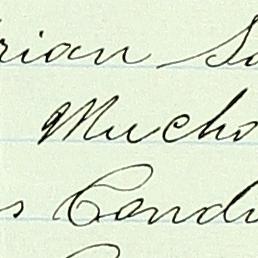 rian Sa
Mucho
s Condu